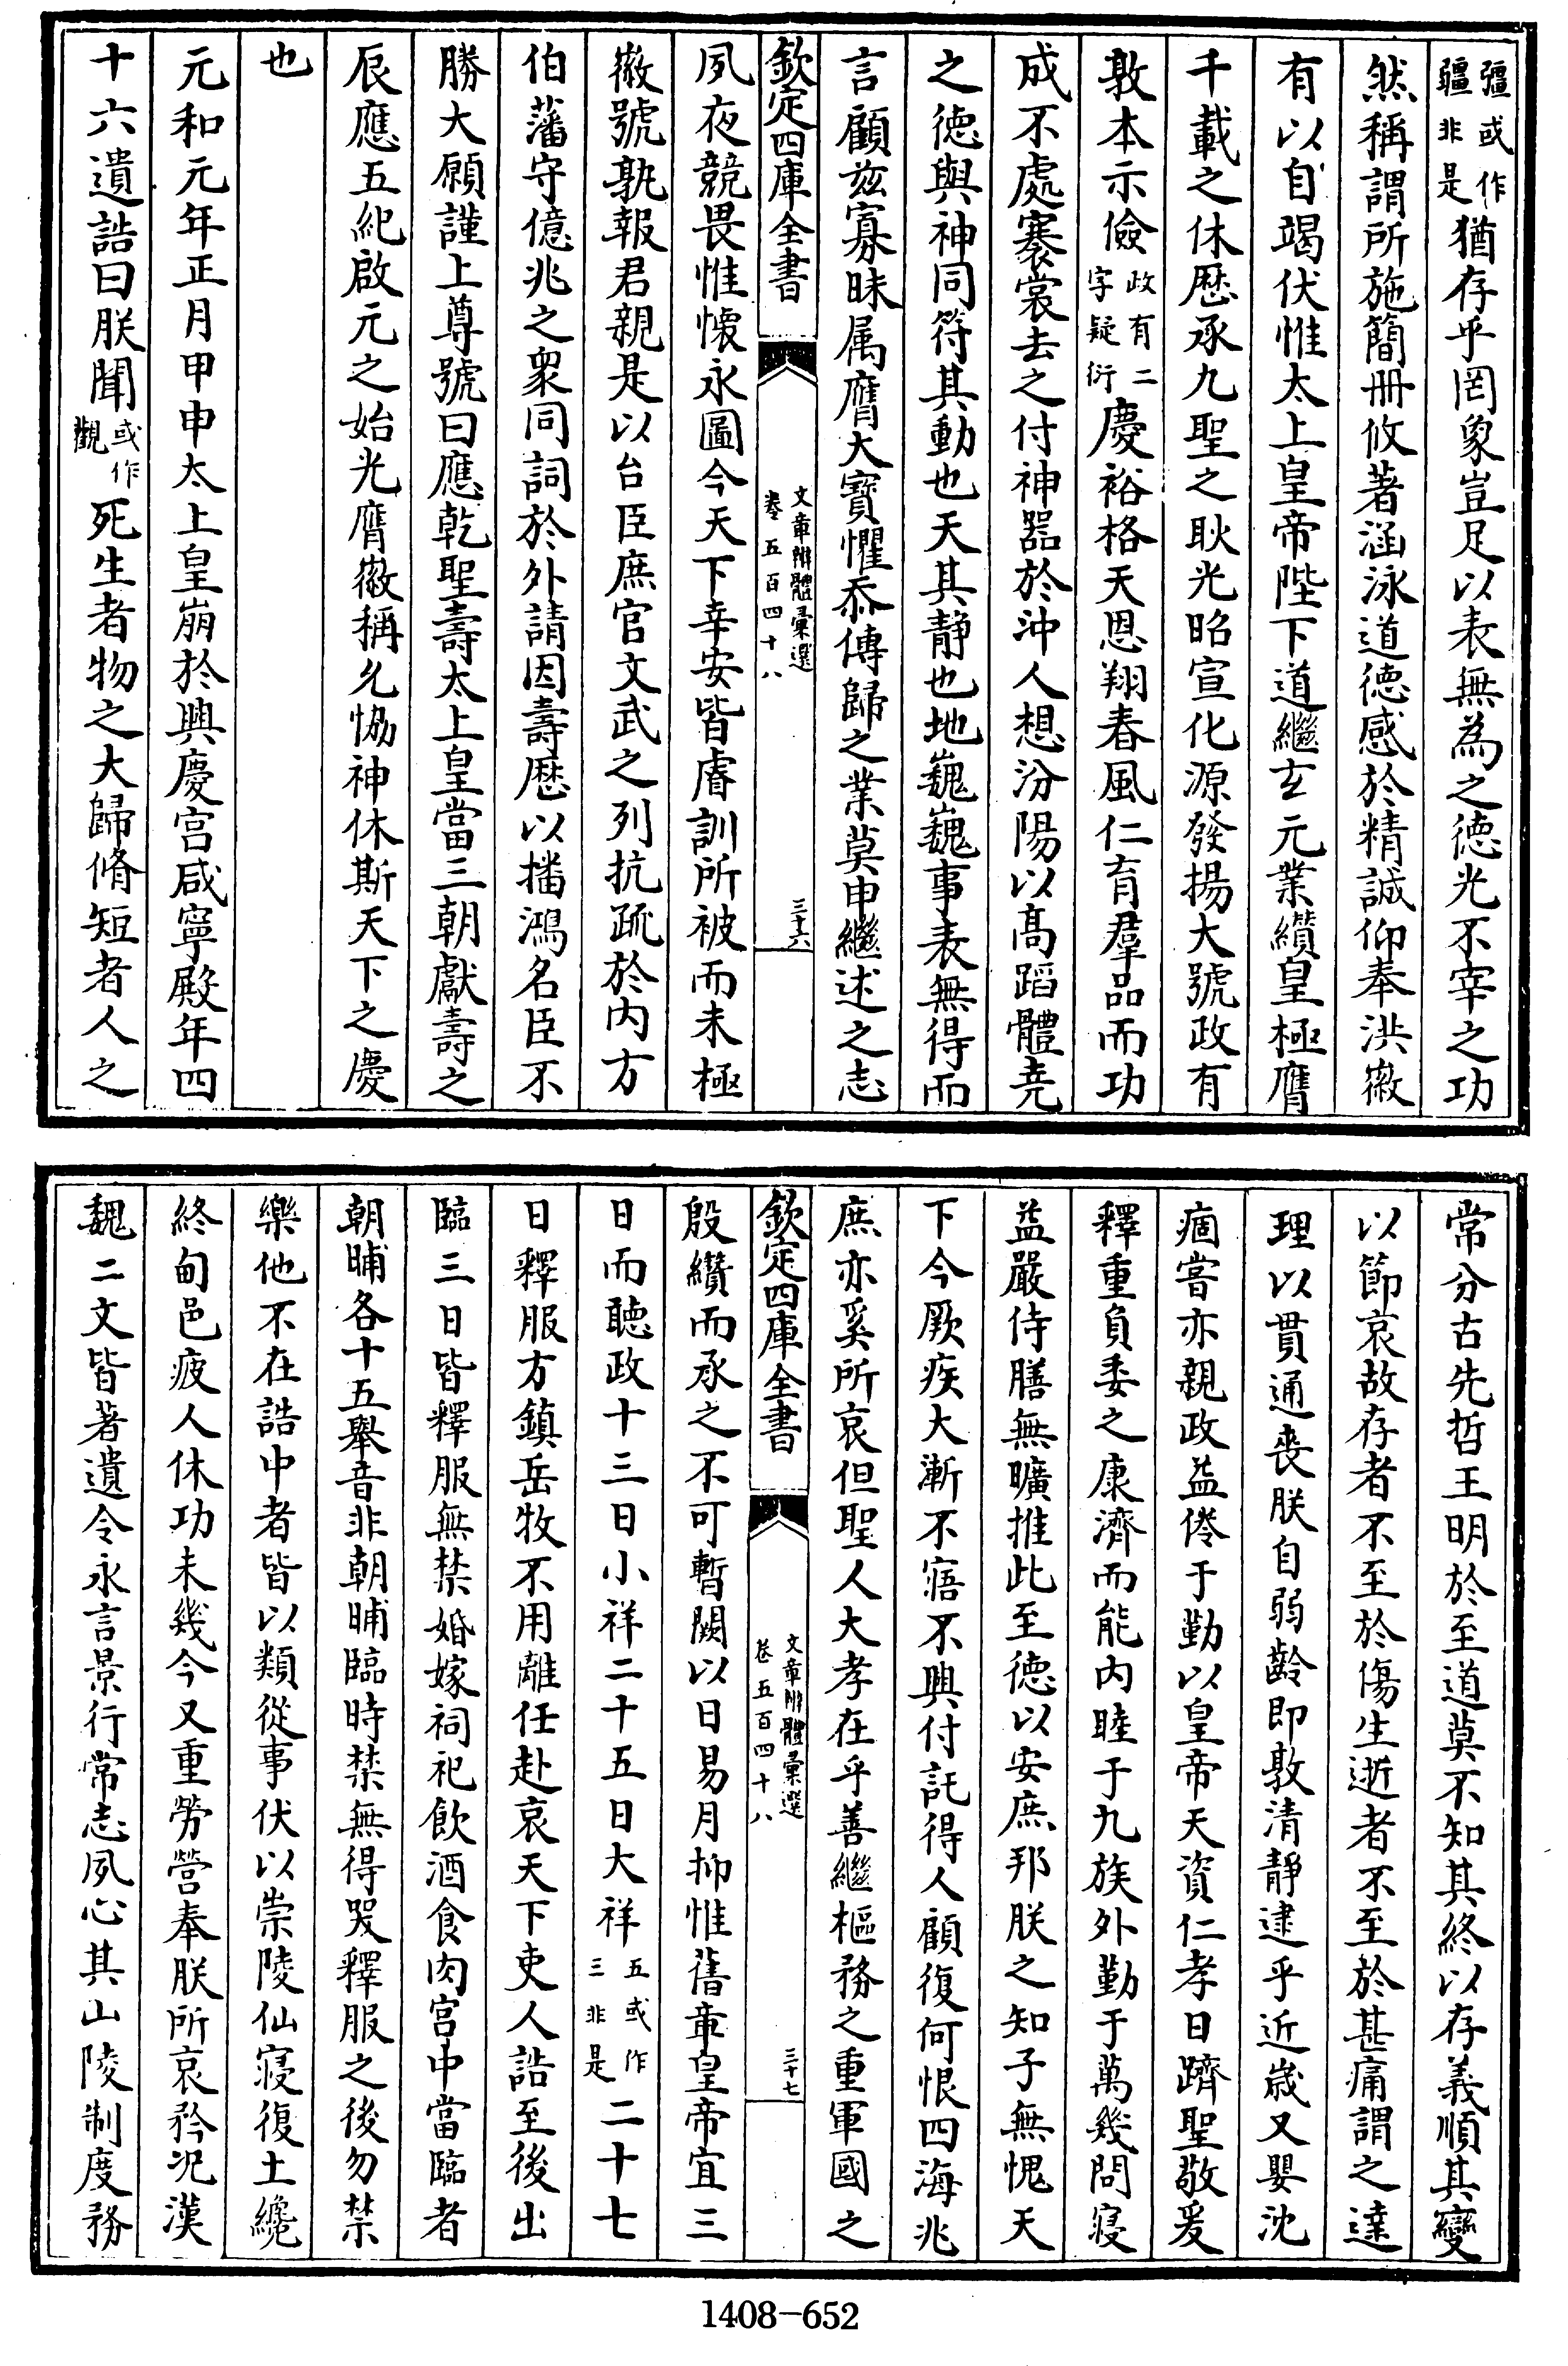 疆或作疆非是猶存乎罔象豈足以表無為之徳光不宰之功
然稱謂所施簡冊攸著涵泳道徳感於精誠仰奉洪徽
有以自竭伏惟太上皇帝陛下道繼玄元業纘皇極膺
千載之休歴承九聖之耿光昭宣化源發揚大號政有
敦本示儉政有二字疑衍慶裕格天恩翔春風仁育羣品而功
成不處褰裳去之付神器於沖人想汾陽以髙蹈體堯
之徳與神同符其動也天其静也地巍巍事表無得而
言顧兹寡昧属膺大寳懼忝傳歸之業莫申繼述之志
欽定四庫全書
文章辨體彙選
卷五百四十八
三十六
夙夜兢畏惟懐永圖今天下幸安皆睿訓所被而未極
徽號孰報君親是以台臣庶官文武之列抗疏於内方
伯藩守億兆之衆同詞於外請因壽歴以播鴻名臣不
勝大願謹上尊號曰應乾聖壽太上皇當三朝獻壽之
辰應五紀啟元之始光膺徽稱允恊神休斯天下之慶
也
元和元年正月甲申太上皇崩於興慶宫咸寧殿年四
十六遺誥曰朕聞或作觀死生者物之大歸脩短者人之
常分古先哲王明於至道莫不知其終以存義順其變
以節哀故存者不至於傷生逝者不至於甚痛謂之達
理以貫通喪朕自弱齡即敦清静逮乎近歳又嬰沈
痼嘗亦親政益倦于勤以皇帝天資仁孝日躋聖敬爰
釋重負委之康濟而能内睦于九族外勤于萬幾問寝
益嚴侍膳無曠推此至徳以安庶邦朕之知子無愧天
下今厥疾大漸不寤不興付託得人顧復何恨四海兆
庶亦奚所哀但聖人大孝在乎善繼樞務之重軍國之
欽定四庫全書
文章辨體彙選
卷五百四十八
三十七
殷纘而承之不可暫闕以日易月抑惟舊章皇帝宜三
日而聽政十三日小祥二十五日大祥五或作三非是二十七
日釋服方鎮岳牧不用離任赴哀天下吏人誥至後出
臨三日皆釋服無禁婚嫁祠祀飲酒食肉宫中當臨者
朝晡各十五舉音非朝晡臨時禁無得哭釋服之後勿禁
樂他不在誥中者皆以類從事伏以崇陵仙寝復土纔
終甸邑疲人休功未幾今又重勞營奉朕所哀矜况漢
魏二文皆著遺令永言景行常志夙心其山陵制度務
1408-652